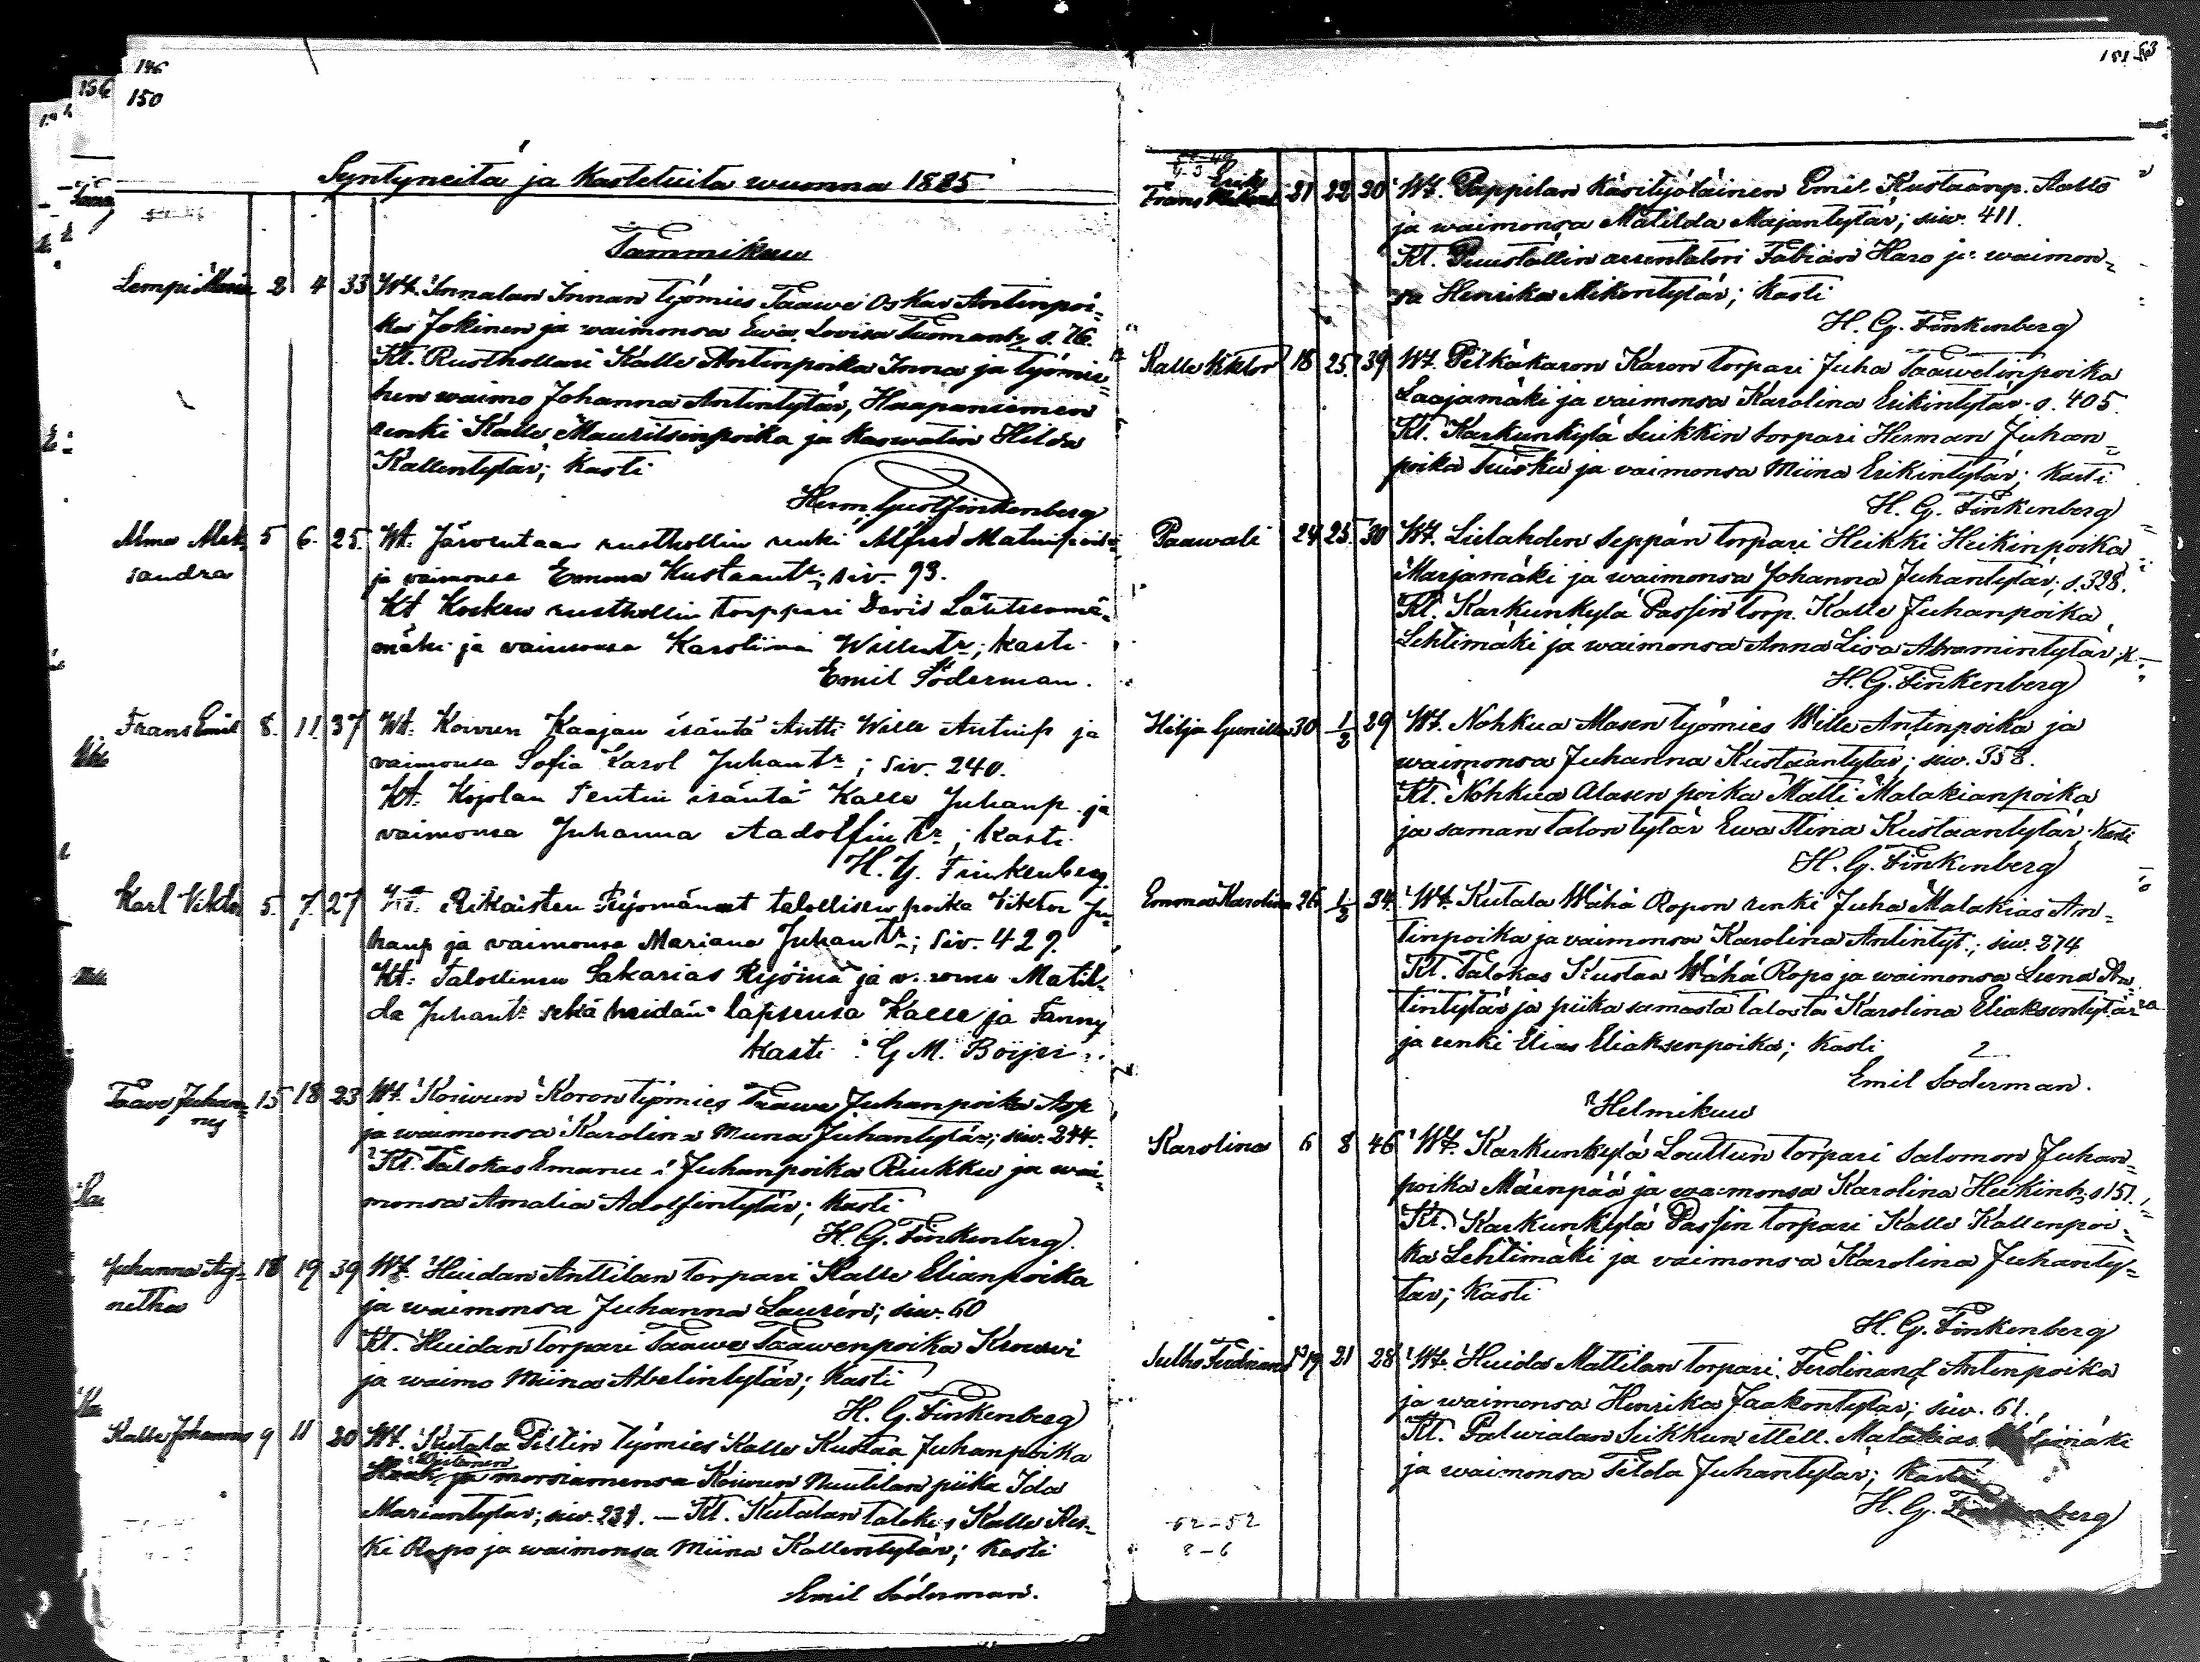 146
150
156
Syntyneitä ja Kastetuita wuonna 1885
Tammikuu
Lempi Maria 2 4 33 Wt. Innalan Innan työmies Taawi Oskar Antinpoi-
ka Jokinen ja waimonsa Ewa Lovisa Tuomantr s. 76.
Kt. Rusthollari Kalle Antinpoika Inna ja työmie-
hen waimo Johanna Antintytär, Haapaniemen
renki Kalle Mauritsinpoika ja Kaswatin Hilda
Kallentytär; Kasti
Herm. Gust Finkenberg
Alma Alek- 5 6. 25. Wt. Järventaan rusthollin renki Alfred
sandra ja vaimonsa Emma Kustaantr; siv. 93.
Kt rusthollin torppari David
mäki ja vaimonsa Karoliina Willentr; kasti
Emil Söderman.
Frans Emil 8. 11. 37 Wt. Kowren Kaajan isäntä Antti Wille Antinp ja
vaimonsa Sofia Karol Juhantr; siv. 240.
Kt. Kojolan Pentin isäntä Kalle Juhanp. ja
vaimonsa Juhanna Aadolfintr; kasti.
H. G. Finkenberg
Karl Viktor 5. 7. 27 Wt. Rikaisten talollisen poika Viktor Ju-
hanp ja vaimonsa Mariana Juhantr; siv. 429.
Kt. Talollinen Sakarias Ryömä ja v.-wmo Matil-
da Juhantr sekä heidän lapsensa Kalle ja Fanny
kasti: G M. Böijer.
Taavo Juhan- 15 18 23 Wt. Koiwun Koron työmies Taawe Juhanpoika
ny ja waimonsa Karolina Miina Juhantytär; siw. 244.
Kt. Talokas Emanuel Juhanpoika Riukku ja wai-
monsa Amalia Adolfintytär; kasti
H. G. Finkenberg.
Juhanna Ag- 18 19 39 Wt. Huidan Anttilan torpari Kalle Elianpoika
netha ja waimonsa Juhanna Laurén; siw. 60
Kt. Huidan torpari Taawe Taawenpoika Krouwi
ja waimo Miina Abelintytär; Kasti
H. G. Finkenberg
Kalle Johannes 9 11 20 Wt. Kutala Pillin työmies Kalle Kustaa Juhanpoika
ja morsiamensa Koiwun Nuutilan piika Ida
Mariantytär; siw. 231. — Kt. Kutalan talokas Kalle Kes-
ki Ropo ja waimonsa Miina Kallentytär; Kasti
Emil Söderman.
Erik
Frans 21 22 30 Wt. Pappilan Käsityöläinen Emil Kustaanp. Aalto
ja waimonsa Matilda Majantytär; siw. 411.
Kt. Puustellin arrentatori Fabian Haro ja waimon-
sa Henrika Mikontytär; Kasti
H. G. Finkenberg
Kalle Viktor 18 25. 39 Wt. Pitkäkaron Karon torpari Juha Taawetinpoika
Laajamäki ja waimonsa Karolina Erikintytär s. 405
Kt. Karkunkylä Luikkin torpari Herman Juhan-
poika Tuisku ja vaimonsa Miina Erikintytär; Kasti
H. G. Finkenberg
Paawali 24 25. 30 Wt. Lielahden Seppän torpari Heikki Heikinpoika
Marjamäki ja waimonsa Johanna Juhantytär; s. 328.
Kt. Karkunkylä Passin torp. Kalle Juhanpoika
Lehtimäki ja waimonsa Anna Lisa Abramintytär; K.
H. G. Finkenberg
Hilja Gunilla 30 1/2 29 Wt. Nohkua Alasen työmies Wille Antinpoika ja
waimonsa Juhanna Kustaantytär; siw. 358.
Kt. Nohkua Alasen poika Matti Malakianpoika
ja saman talon tytär Ewa Stina Kustaantytär; Kasti
H. G. Finkenberg
Emma Karolina 26 1/2 34 Wt. Kutala Wähä Ropon renki Juha Malakias An-
tinpoika ja vaimonsa Karolina Antintyt.; siw. 274
Kt. Talokas Kustaa Wähä Ropo ja waimonsa Leena An-
tintytär ja piika samasta talosta Karolina Eliaksentytär
ja renki Elias Eliaksenpoika; Kasti
Emil Söderman.
Helmikuu
Karolina 6 8 46 Wt. Karkunkylä Louttun torpari Salomon Juhan-
poika Mäenpää ja waimonsa Karolina Heikint. s 151.
Kt. Karkunkylä Passin torpari Kalle Kallenpoi-
ka Lehtimäki ja vaimonsa Karolina Juhanty-
tär; Kasti
H. G. Finkenberg
Julho Ferdinand 19 21 28 Wt. Huida Mattilan torpari Ferdinand Antinpoika
ja waimonsa Henrika Jaakontytär; siw. 61.
Kt. Palwialan Luikkun Mell. Malakias
ja waimonsa Tilda Juhantytär; Kasti
H. G. Finkenberg
52-52
8-6